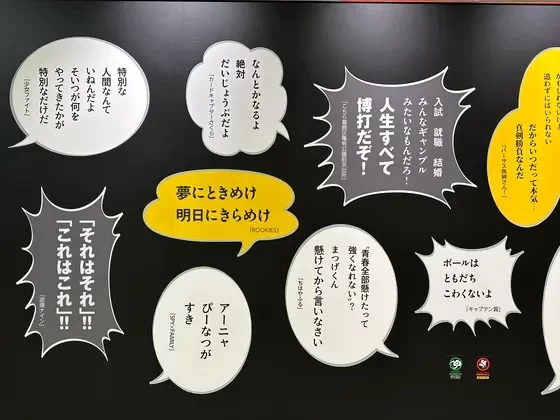 特別な
人間なんて
いねんだよ
そいつが何を
やってきたかが
特別なだけだ
『少女ファイト』
なんとかなるよ
絶対
だいじょうぶだよ
『カードキャプターさくら』
入試 就職 結婚
みんなギャンブル
みたいなもんだろ!
人生すべて
博打だぞ!
『こちら葛飾区亀有公園前派出所』
追わずにはいられない
だからいつだって本気…
真剣勝負なんだ
「それはそれ」!!
「これはこれ」!!
『逆境ナイン』
夢にときめけ
明日にきらめけ
『ROOKIES』
アーニャ
ぴーなつが
すき
『SPY×FAMILY』
"青春全部懸けたって
強くなれない"?
まつげくん
懸けてから言いなさい
『ちはやふる』
ボールは
ともだち
こわくないよ
『キャプテン翼』